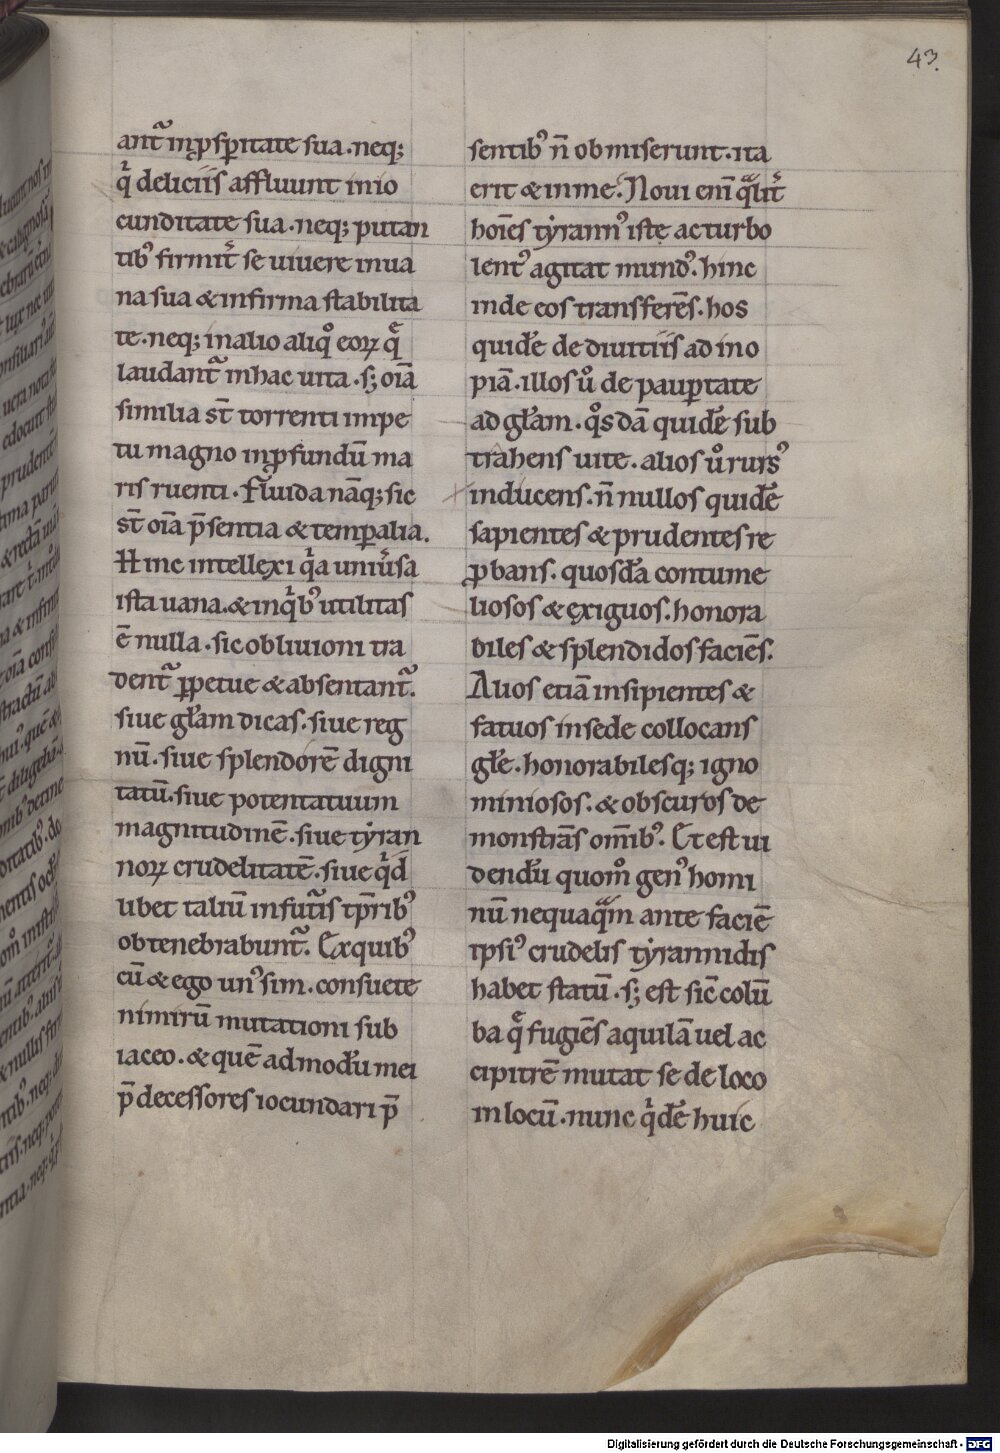 43.
ant᷑ inꝓsꝑitate sua. neq;
qͥ deliciis affluunt inio
cunditate sua. neq; putan
tibꝰ firmit᷑ se uiuere inua
na sua & infirma stabilita
te. neq; inalio aliqͦ eoꝝ q̄
laudant᷑ inhac uita. s; oīa
similia st̄ torrenti impe
tu magno inꝓfundū ma
ris ruenti. Fluida nāq; sic
st̄ oīa p̄sentia & temꝑalia.
Hinc intellexi qͥa uniu͛sa
ista uana. & inqͥbꝰ utilitas
ē nulla. sic obliuioni tra
dent᷑ ꝑpetue & absentant᷑.
siue głam dicas. siue reg
nū. siue splendorē digni
tatū. siue potentatuum
magnitudinē. siue tẏran
noꝝ crudelitatē. siue qͥd
ubet taliū infut᷑is tp̄ribꝰ
obtenebrabunt᷑. Exquibꝰ
cū & ego unꝰ sim. consuete
nimirū mutationi sub
iaceo. & quē admodū mei
p̄decessores iocundari p̄
sentibꝰ n̄ obmiserunt. ita
erit & inme. Noui eni̅ qͣlit᷑
hoīes tẏrannꝰ iste ac turbo
lentꝰ agitat mundꝰ. hinc
inde eos transferēs. hos
quidē de diuitiis ad ino
piā. illos u͛o de pauꝑtate
ad głam. qͦsdā quidē sub
trahens uite. alios u͛o rursꝰ
inducens. n̄ nullos quidē
sapientes & prudentes re
ꝓbans. quosdā contume
liosos & exiguos. honora
biles & splendidos faciēs.
Alios etiā insipientes &
fatuos insede collocans
głe. honorabilesq; igno
miniosos. & obscuros de
monstrās om̄ibꝰ. Et est ui
dendū quom̊ genꝰ homi
nū nequaqͣm ante faciē
ipsiꝰ crudelis tẏrannidis
habet statū. s; est sic̄ colū
ba q̄ fugiēs aquilā uel ac
cipitrē mutat se de loco
in locū. nunc qͥdē huic
Digitalisierung gefördert durch die Deutsche Forschungsgemeinschaft - DFG